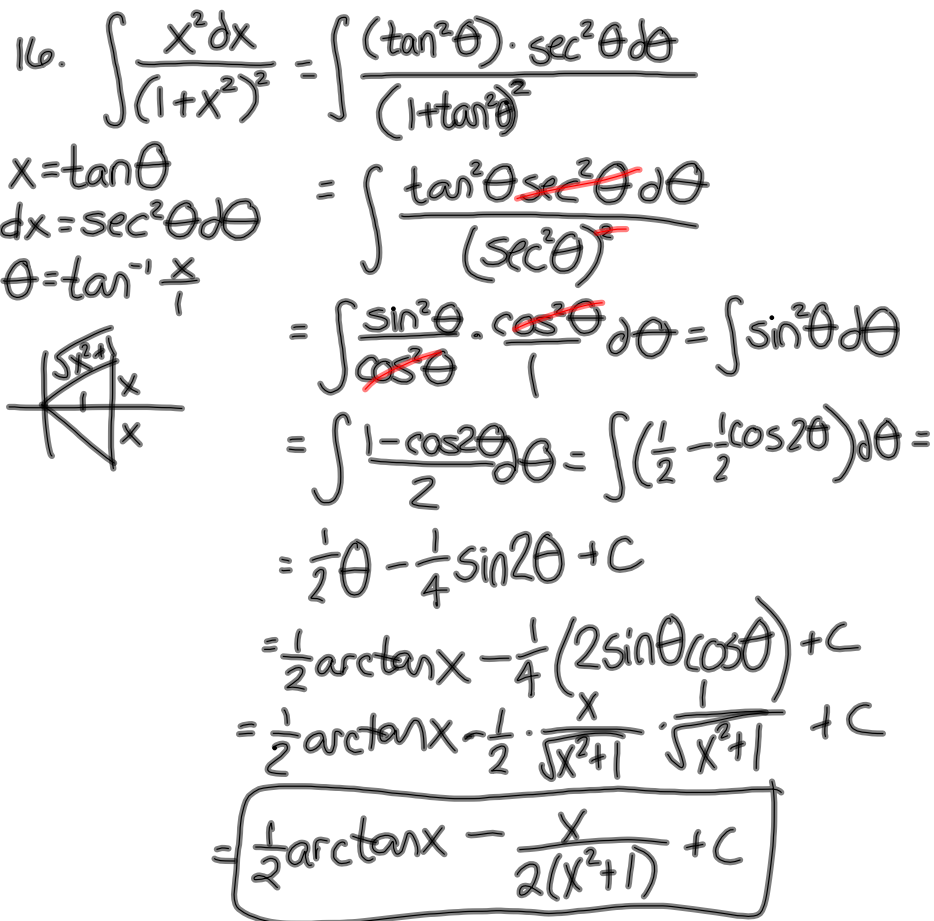 16. ∫ x²dx / (1+x²)² = ∫ (tan²θ)·sec²θdθ / (1+tan²θ)²
x=tanθ
= ∫ tan²θsec²θdθ / (sec²θ)²
dx=sec²θdθ
θ=tan⁻¹ x/1
= ∫ sin²θ/cos²θ · cos²θ/1 dθ = ∫ sin²θdθ
√x²+1
x
1
x
= ∫ 1-cos2θ/2 dθ = ∫(1/2 - 1/2cos2θ)dθ =
= 1/2θ - 1/4sin2θ + C
= 1/2arctanx - 1/4(2sinθcosθ) + C
= 1/2arctanx - 1/2 · x/√x²+1 · 1/√x²+1 + C
= 1/2arctanx - x/2(x²+1) + C